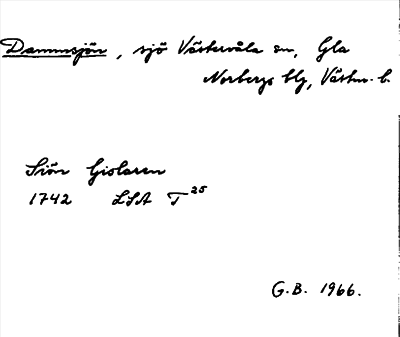 Dammsjön, sjö Västervåla sn, Gla
Norbergs blg, Västm. l.
Siön Gislaren
1742 LSA T 25
G.B. 1966.